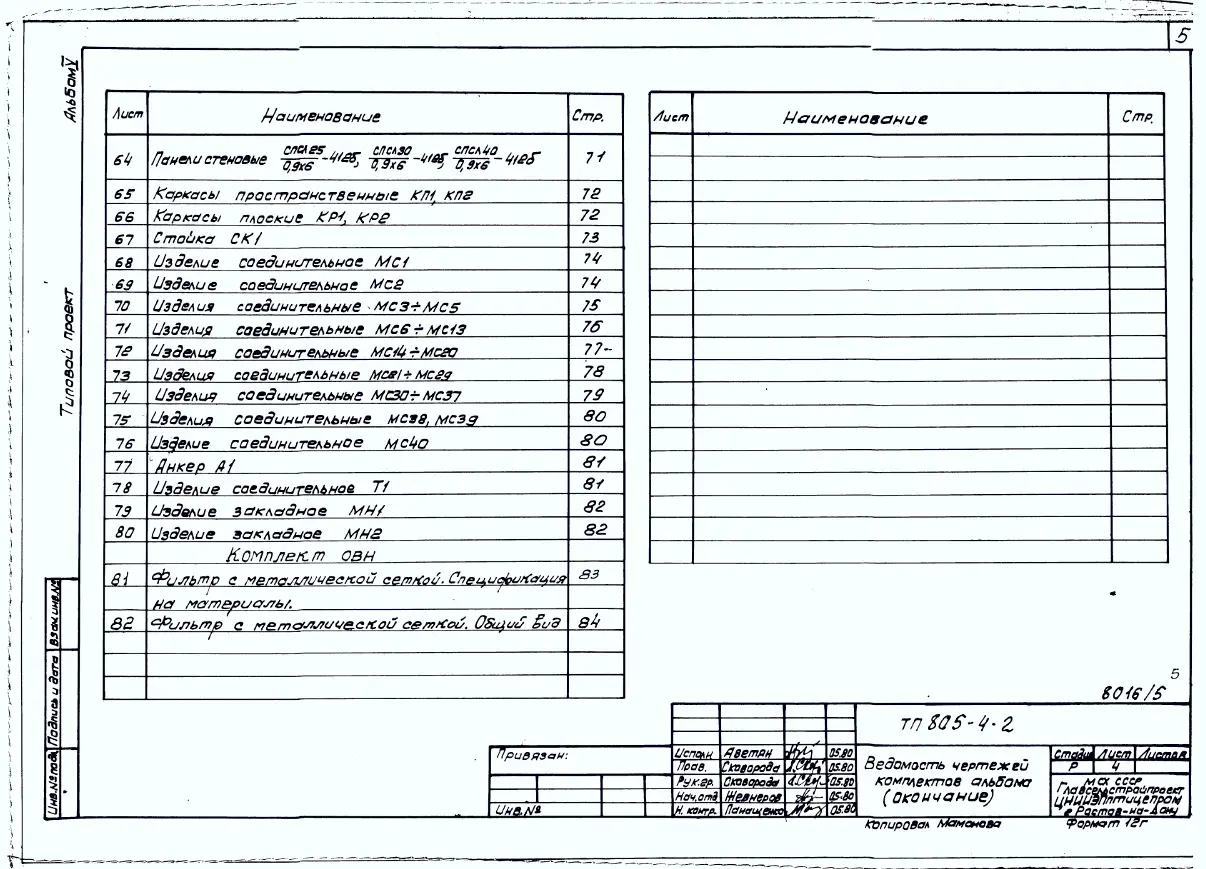 5
Альбом V
Типовой проект
Лист Наименование Стр.
64 Панели стеновые СПСЛ25/0,9х6-41вб, СПСЛ30/0,9х6-41вб, СПСЛ40/0,9х6-41вб 71
65 Каркасы пространственные КП1, КП2 72
66 Каркасы плоские КР1, КР2 72
67 Стойка СК1 73
68 Изделие соединительное МС1 74
69 Изделие соединительное МС2 74
70 Изделия соединительные МС3÷МС5 75
71 Изделия соединительные МС6÷МС13 76
72 Изделия соединительные МС14÷МС20 77
73 Изделия соединительные МС21÷МС29 78
74 Изделия соединительные МС30÷МС37 79
75 Изделия соединительные МС38, МС39 80
76 Изделие соединительное МС40 80
77 Анкер А1 81
78 Изделие соединительное Т1 81
79 Изделие закладное МН1 82
80 Изделие закладное МН2 82
Комплект ОВН
81 Фильтр с металлической сеткой. Спецификация 83
на материалы.
82 Фильтр с металлической сеткой. Общий вид 84
Лист Наименование Стр.
Взам.инв.№
Подпись и дата
Инв.№ подл.
5
8016/5
ТП 805-4-2
Привязан:
Инв.№
Исполн Яветян 05.80
Пров. Сковорода 05.80
Рук.гр. Сковорода 05.80
Нач.отд Жевнеров 05.80
Н. контр. Панащенко 05.80
Ведомость чертежей
комплектов альбома
(окончание)
Стадия Лист Листов
Р 4
МСХ СССР
Главсельстройпроект
ЦНИИЭПптицепром
г. Ростов-на-Дону
Копировал Мамонова
Формат 12г